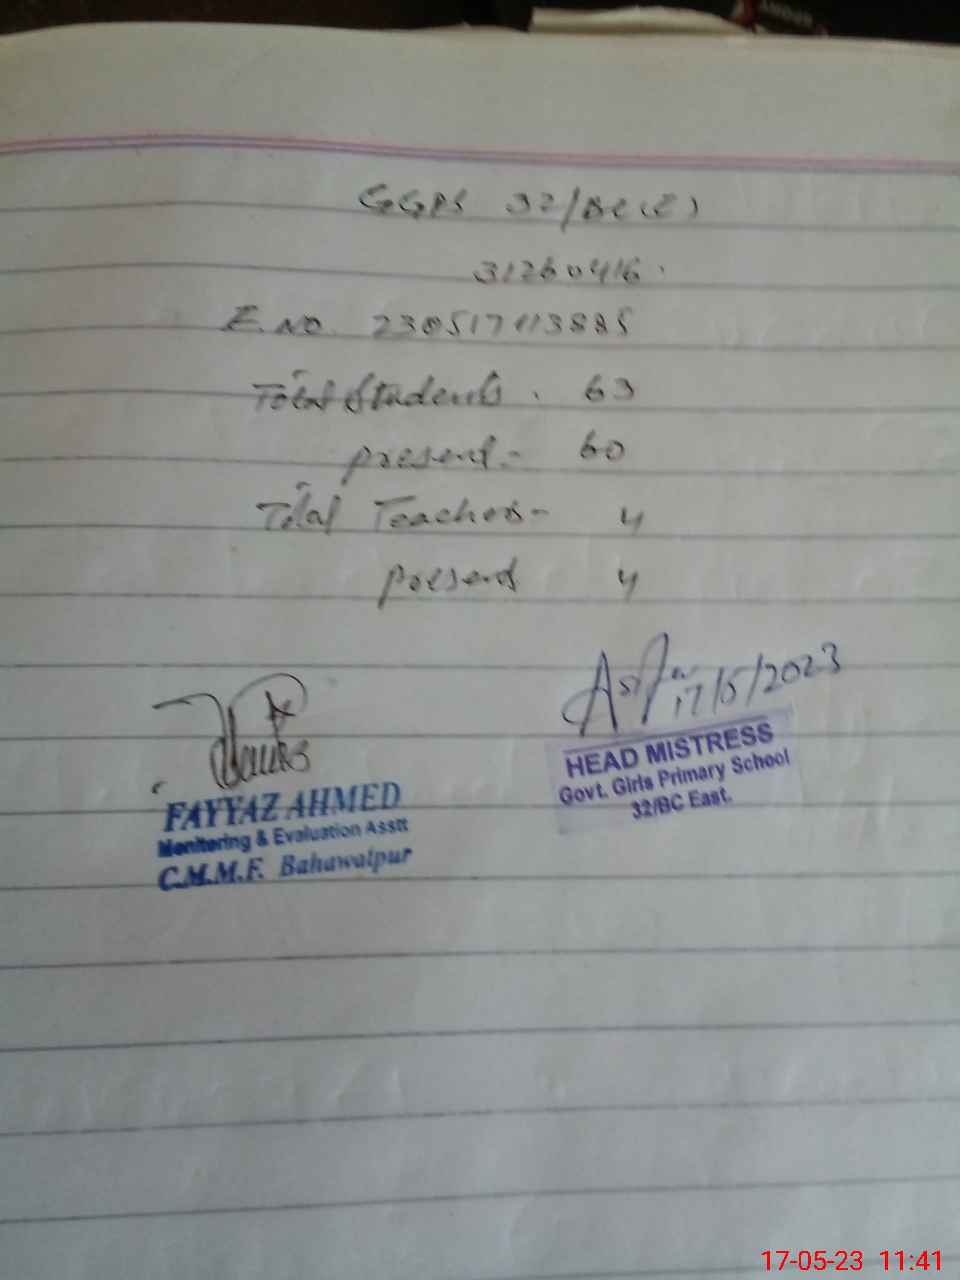 GGPS 32/BC(E)
31260416.
E.NO. 230517113885
Total Students. 63
present - 60
Total Teachers - 4
present 4
17/5/2023
HEAD MISTRESS
Govt. Girls Primary School
32/BC East.
FAYYAZ AHMED
Monitoring & Evaluation Asstt
C.M.M.F. Bahawalpur
17-05-23 11:41